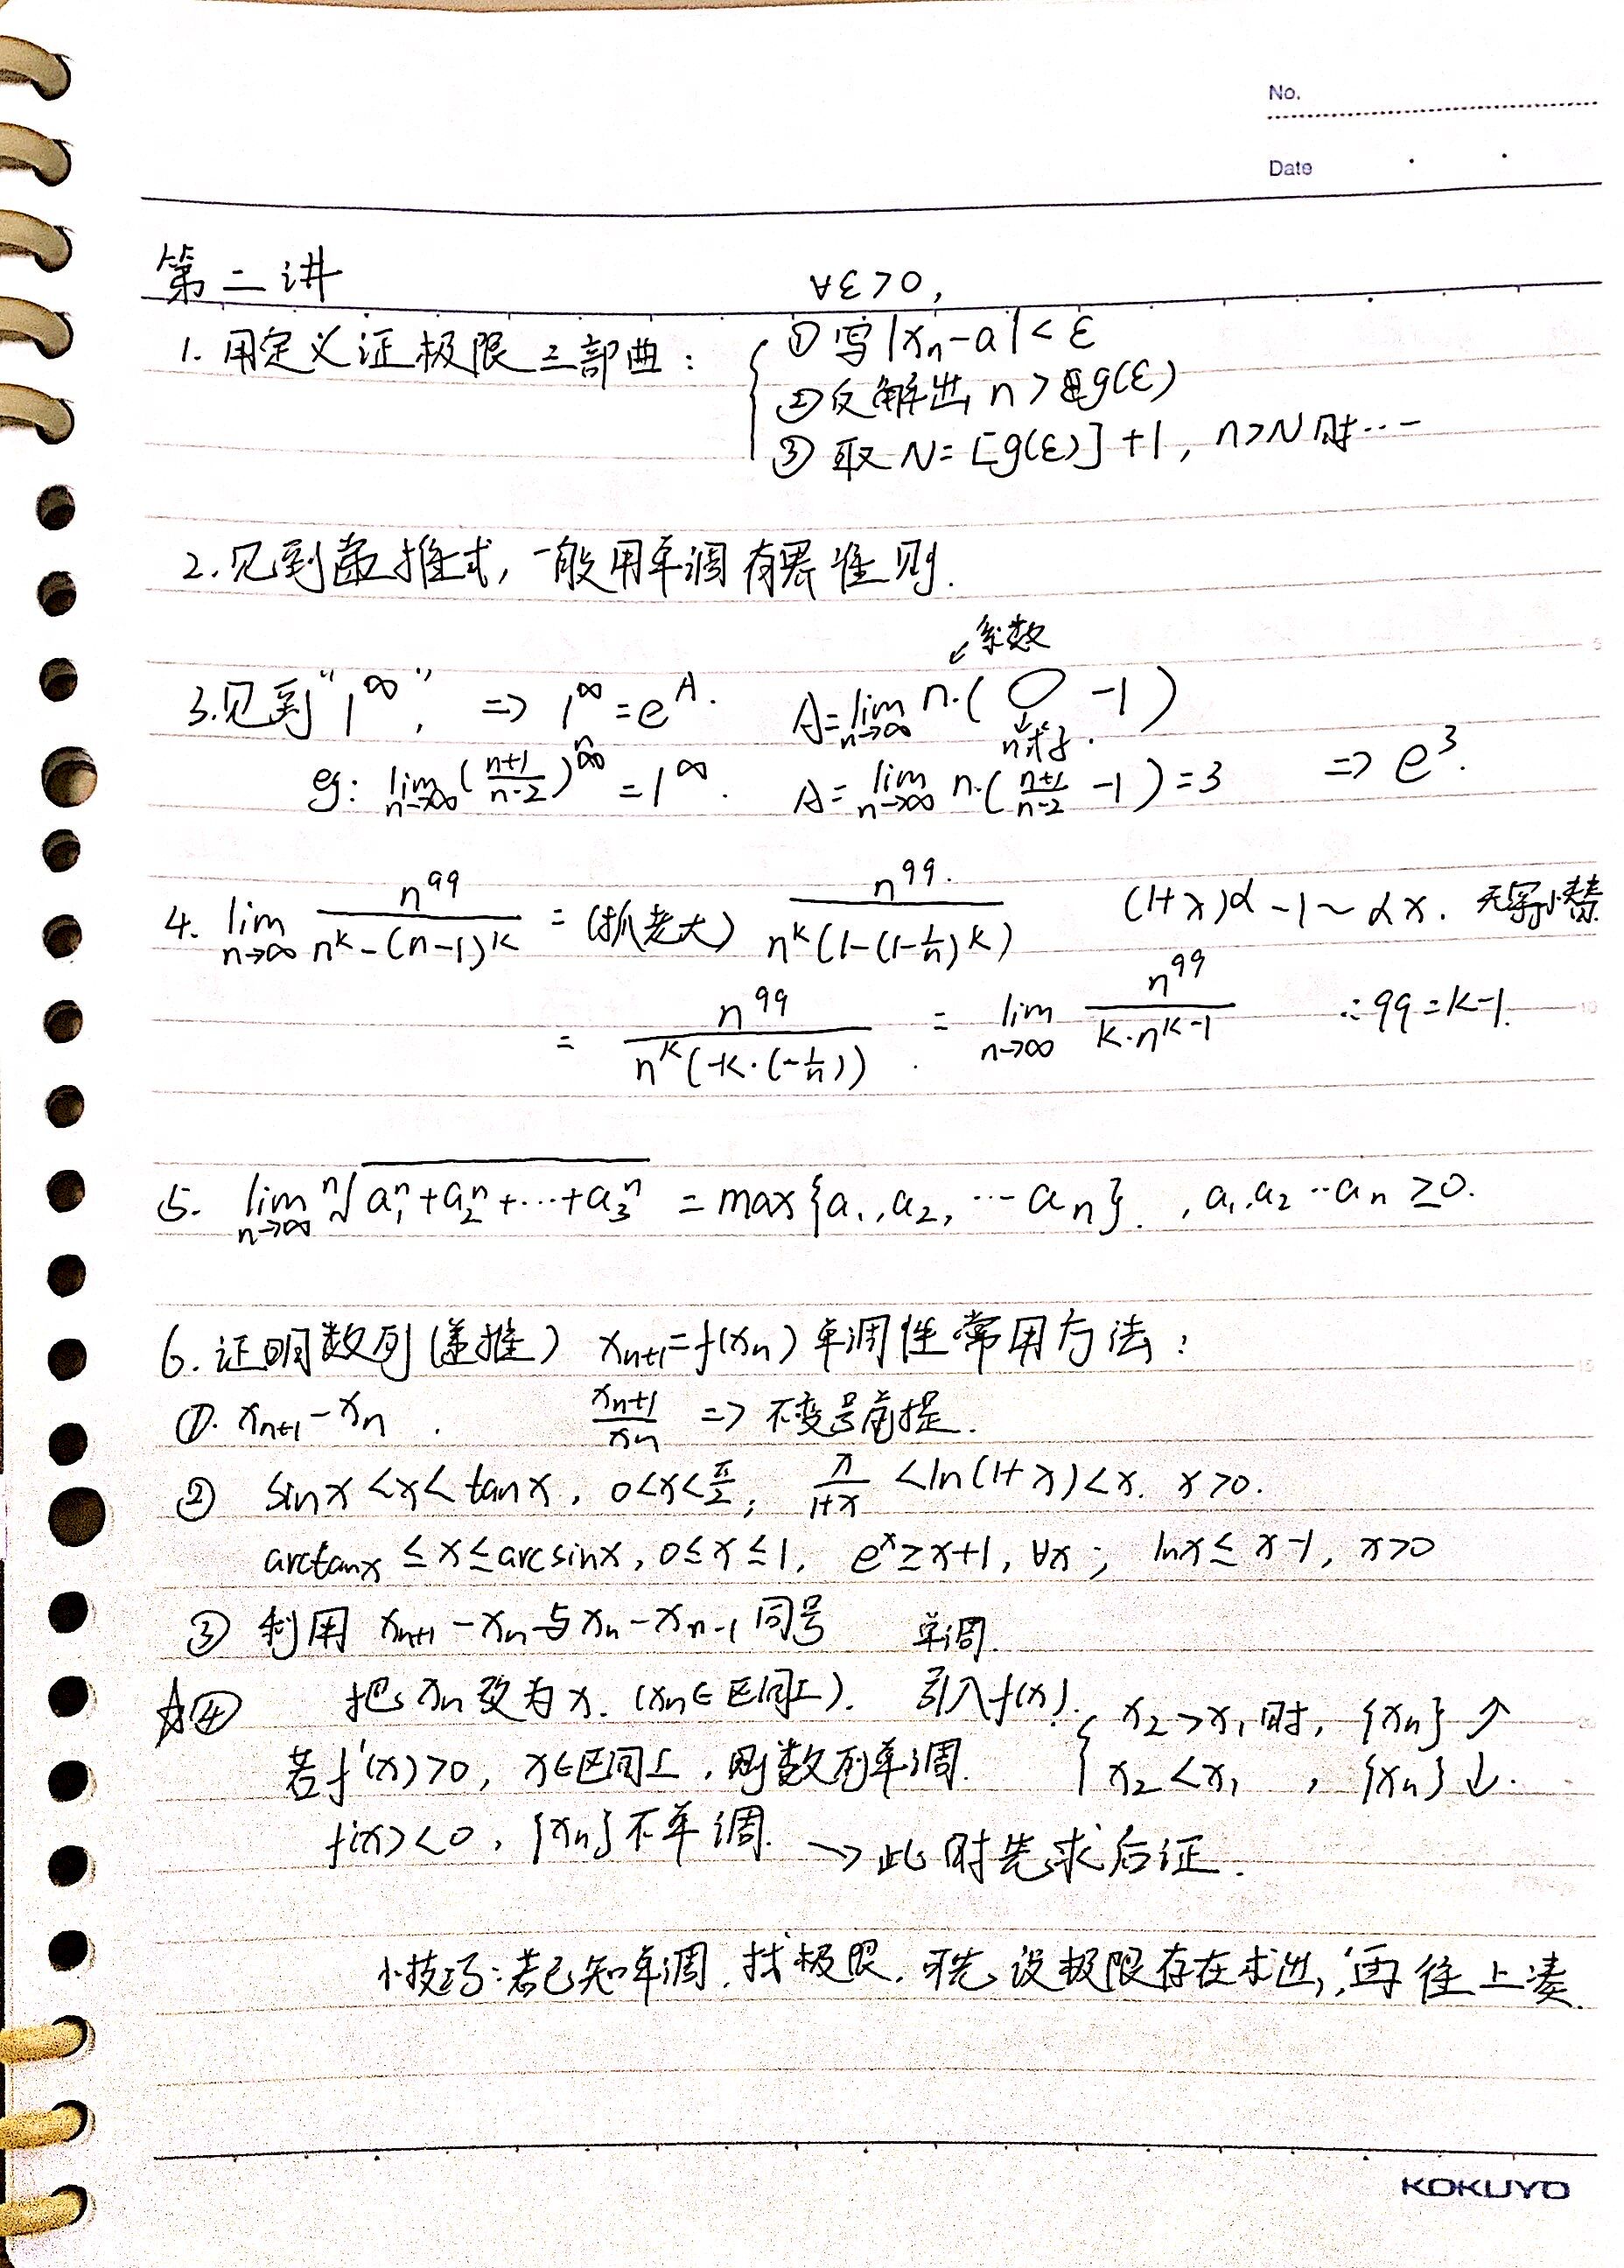 No.
Date
第二讲
∀ε>0,
1. 用定义证极限三部曲:
① 写|xₙ-a|<ε
②反解出 n>g(ε)
③ 取 N=[g(ε)]+1, n>N时…
2.见到递推式, 一般用单调有界准则.
系数
3.见到"1^∞", => 1^∞=e^A. A=lim n→∞ n·( ○ -1)
n式子.
eg: lim n→∞ ((n+1)/(n-2))^n =1^∞. A=lim n→∞ n·((n+1)/(n-2) -1)=3 => e³.
4. lim n→∞ n^99/(n^k-(n-1)^k) = (抓老大) n^99/(n^k(1-(1-1/n)^k)) (1+x)^α-1~αx. 无穷小替
= n^99/(n^k(-k·(-1/n))) = lim n→∞ n^99/(k·n^(k-1)) ∴99=k-1.
5. lim n→∞ ⁿ√(a₁ⁿ+a₂ⁿ+…+a₃ⁿ) = max{a₁,a₂,…aₙ}. , a₁,a₂…aₙ ≥0.
6.证明数列(递推) xₙ₊₁=f(xₙ) 单调性常用方法:
①. xₙ₊₁-xₙ. xₙ₊₁/xₙ => 不变号前提.
② sinx<x<tanx, 0<x<π/2; x/(1+x) <ln(1+x)<x. x>0.
arctanx ≤x≤arcsinx, 0≤x≤1, e^x≥x+1, ∀x; lnx≤x-1, x>0
③ 利用 xₙ₊₁-xₙ与xₙ-xₙ₋₁同号 单调.
☆④ 把xₙ改为x. (xₙ∈区间I). 引入f(x).
x₂>x₁时, {xₙ}↑
若f'(x)>0, x∈区间I, 则数列单调.
x₂<x₁ , {xₙ}↓.
f'(x)<0, {xₙ}不单调. → 此时先求后证.
小技巧:若已知单调,找极限,可先设极限存在求出,再往上凑.
KOKUYO